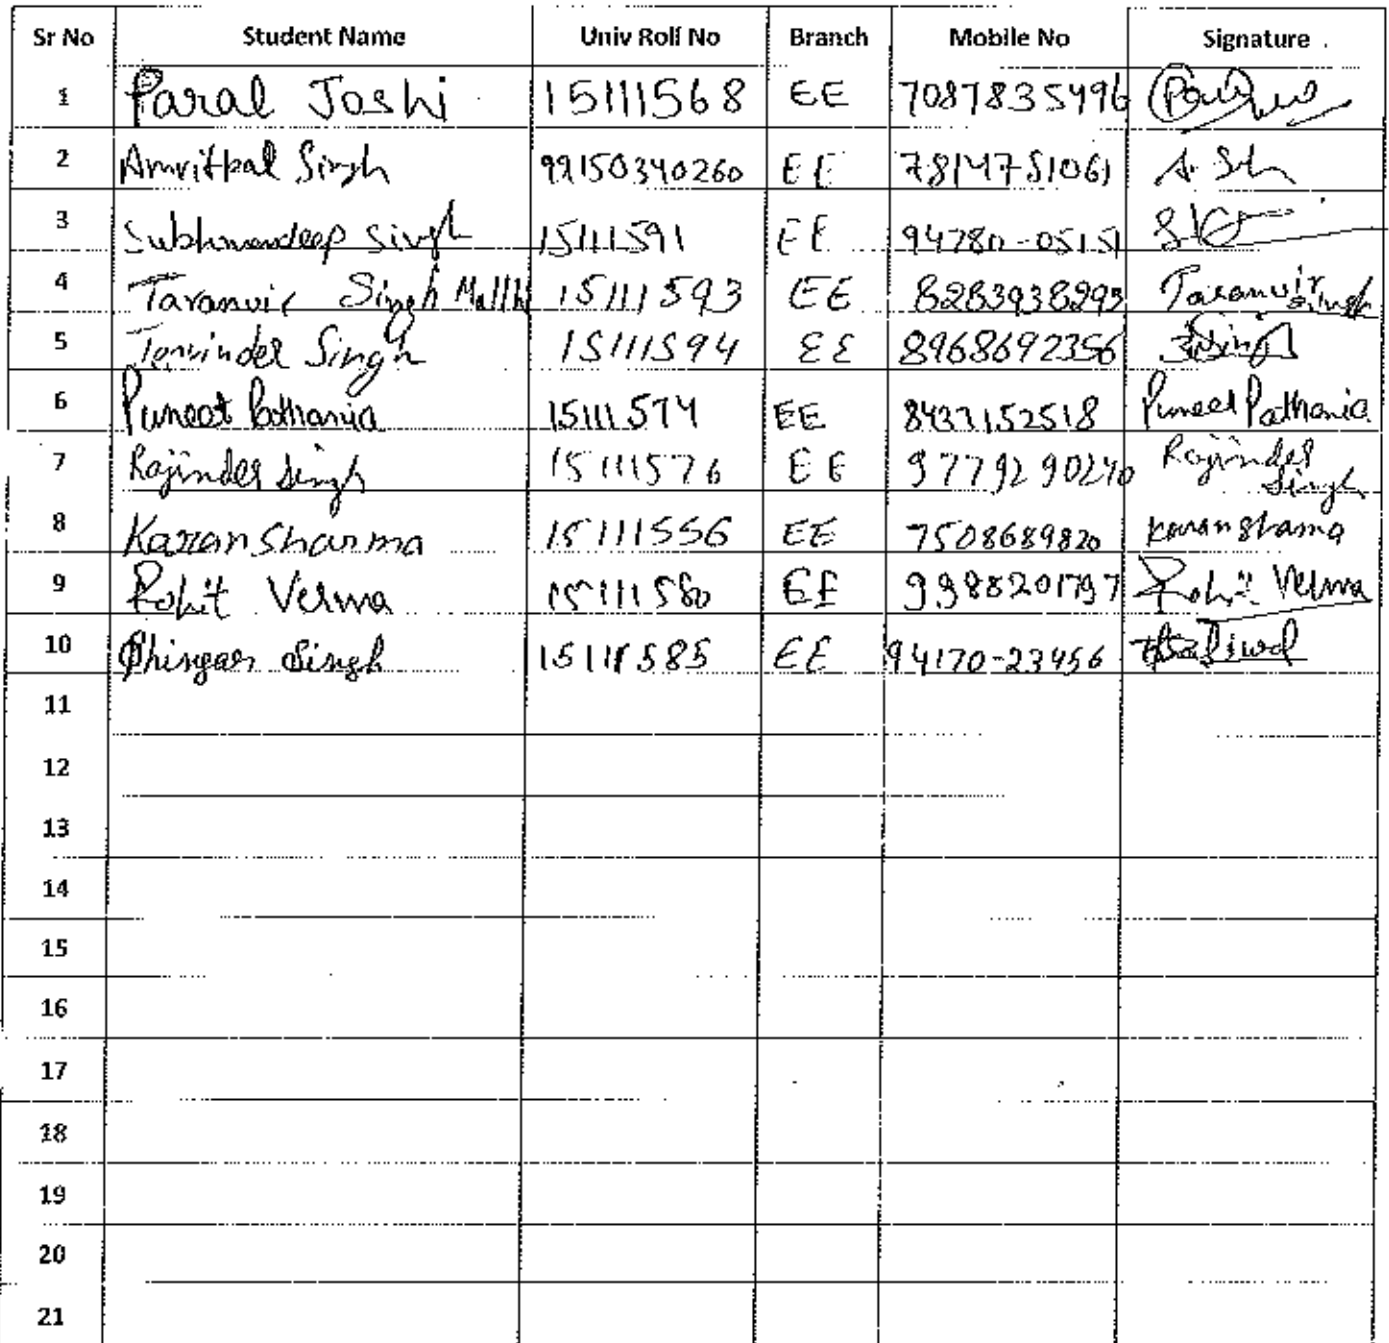 Sr No Student Name Univ Roll No Branch Mobile No Signature
1 Paral Joshi 15111568 EE 7087835496
2 Amritpal Singh 99150340260 EE 7814751061 A. Sh
3 Subhmandeep Singh 15111591 EE 94780-05151
4 Taranvir Singh Mallhi 15111593 EE 8283938293 Taranvir Singh
5 Tarvinder Singh 15111594 EE 8968692356 Singh
6 Puneet Pathania 15111574 EE 8437152518 Puneet Pathania
7 Rajinder Singh 15111576 EE 9779290240 Rajinder Singh
8 Karan Sharma 15111556 EE 7508689820 Karan Sharma
9 Rohit Verma 15111580 EE 9988201797 Rohit Verma
10 Singh 15111585 EE 94170-23456
11
12
13
14
15
16
17
18
19
20
21